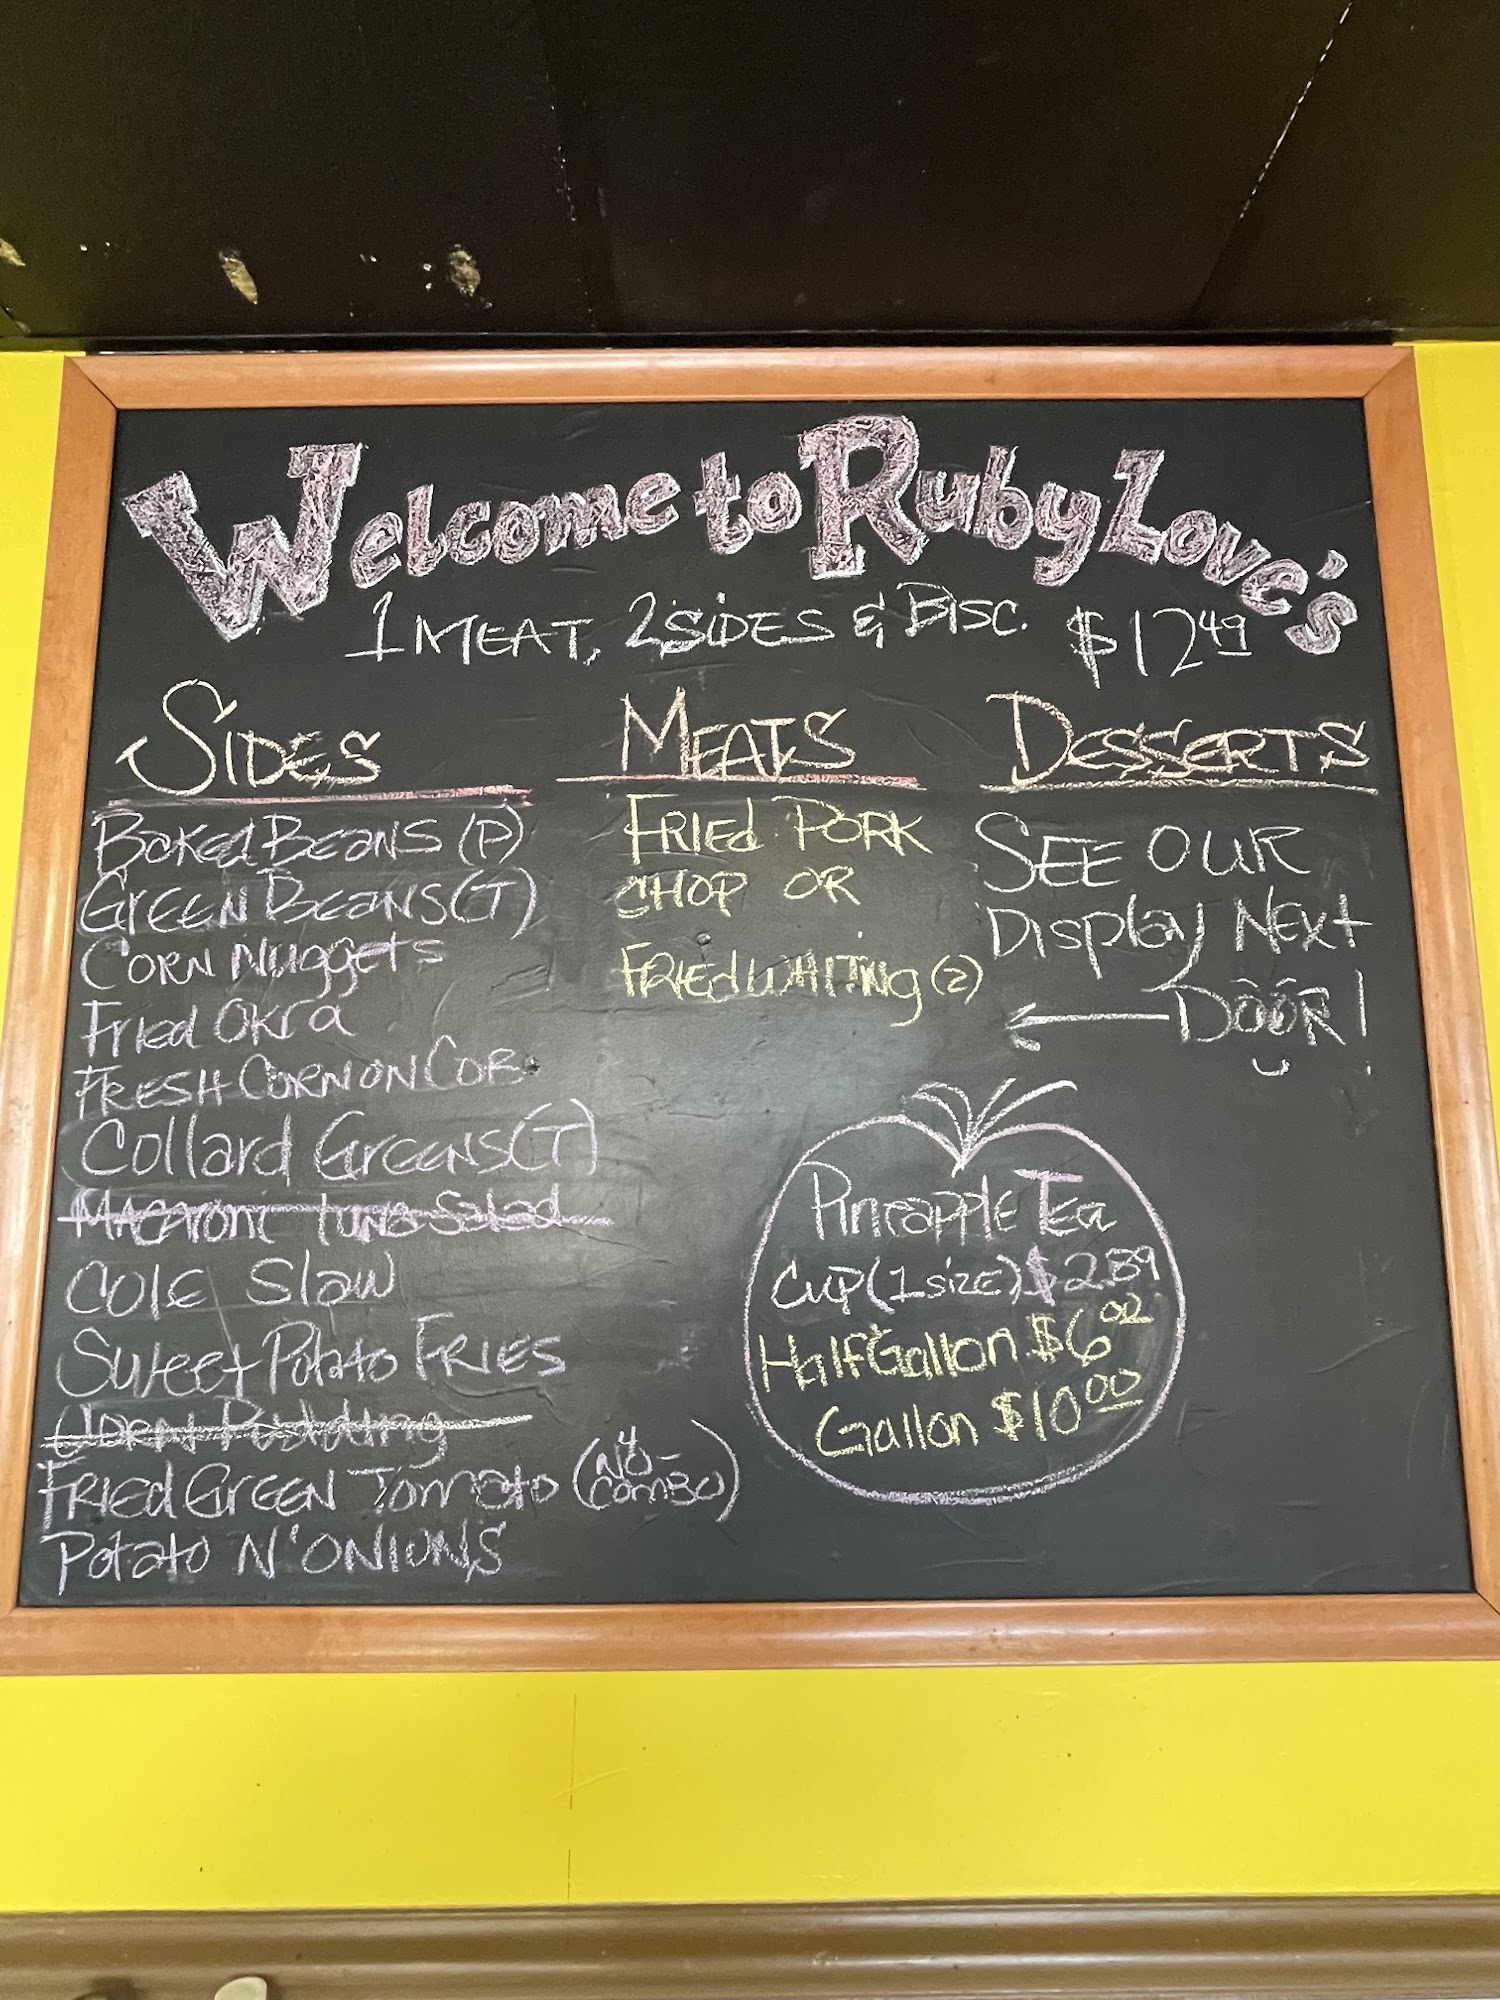 Welcome to Ruby Love's
1 MEAT, 2 SIDES & BISC. $12.49
SIDES
Baked Beans (P)
Green Beans (T)
Corn Nuggets
Fried Okra
Fresh Corn on Cob
Collard Greens (T)
Macaroni Tuna Salad
Cole Slaw
Sweet Potato Fries
Pudding
Fried Green Tomato (4 NO-COMBO)
Potato N' Onions
MEATS
Fried Pork
Chop or
Fried Whiting (2)
DESSERTS
See our
Display Next
Door!
Pineapple Tea
Cup (1 size) $2.89
Half Gallon $6.00
Gallon $10.00